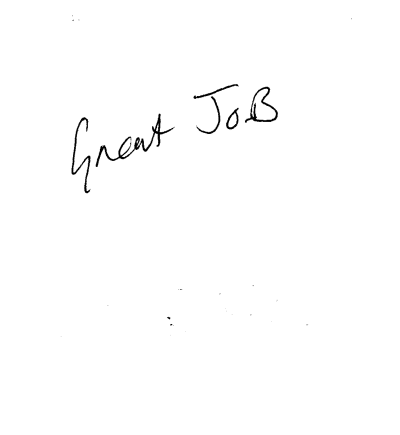 Great JOB